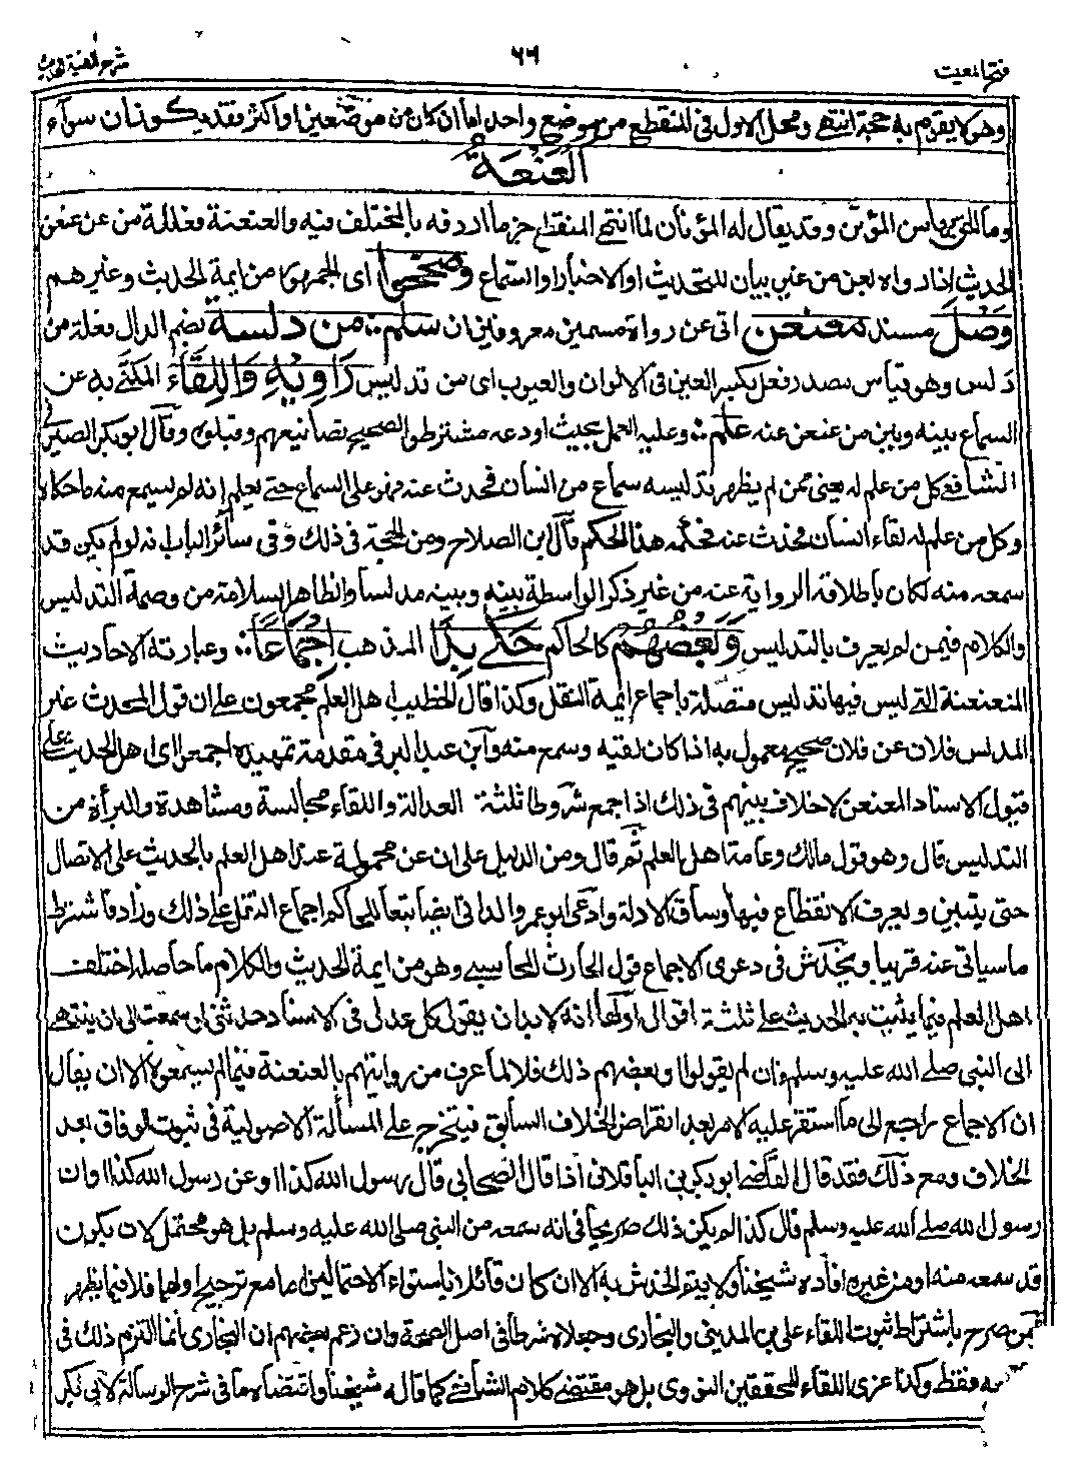 فتح المغيث ٦٦ شرح الفية الحديث
وهو لا يقوم به حجة انتهى ومحل الاول في المنقطع من موضع واحد اما ان كان من موضعين او اكثر فقد يكونان سواء
العنعنة
وما الحق بها من المؤنن وقد يقال له المؤنان لما انتهى المنقطع جزما اردفه بالمختلف فيه والعنعنة فعللة من عنعن
الحديث اذا رواه بعن من غير بيان للتحديث او الاخبار او السماع وصححوا اى الجمهور من ايمة الحديث وغيرهم
وصل مسند معنعن اتى عن رواة مسمين معروفين ان سلم ؞ من دلسة بضم الدال فعلة من
دلس وهو قياس مصدر فعل بكسر العين في الالوان والعيوب اى من تدليس راويه واللقاء المكنى به عن
السماع بينه وبين من عنعن عنه علم ؞ وعليه العمل بحيث اودعه مشترطو الصحيح تصانيفهم وقبلوه وقال ابو بكر الصيرفي
الشافعى كل من علم له يعنى ممن لم يظهر تدليسه سماع من انسان فحدث عنه فهو على السماع حتى يعلم انه لم يسمع منه ما حكاه
وكل من علم له لقاء انسان فحدث عنه فحكمه هذا الحكم قال ابن الصلاح ومن الحجة في ذلك وفى سائر الباب انه لو لم يكن قد
سمعه منه لكان باطلاقه الرواية عنه من غير ذكر الواسطة بينه وبينه مدلسا والظاهر السلامة من وصمة التدليس
والكلام فيمن لم يعرف بالتدليس وبعضهم كالحاكم حكى بذا المذهب اجماعا ؞ وعبارته الاحاديث
المنعنعنة التى ليس فيها تدليس متصلة باجماع ايمة النقل وكذا قال الخطيب اهل العلم مجمعون على ان قول المحدث غير
المدلس فلان عن فلان صحيح معمول به اذا كان لقيه وسمع منه وابن عبد البر في مقدمة تمهيده اجمعوا اى اهل الحديث على
قبول الاسناد المعنعن لاخلاف بينهم في ذلك اذا جمع شروطا ثلثة العدالة واللقاء مجالسة ومشاهدة والبرأة من
التدليس قال وهو قول مالك وعامة اهل العلم ثم قال ومن الدليل على ان عن محمولة عند اهل العلم بالحديث على الاتصال
حتى يتبين ويعرف الانقطاع فيها وساق الادلة وادعى ابو عمرو الدانى ايضا تبعا للحاكم اجماع النقل على ذلك وزاد فاشترط
ما سياتى عنه قريبا ويخدش في دعوى الاجماع قول الحارث المحاسبي وهو من ايمة الحديث والكلام ما حاصله اختلف
اهل العلم فيما يثبت به الحديث على ثلثة اقوال اولها انه لابد ان يقول كل عدل في الاسناد حدثنى او سمعت الى ان ينتهى
الى النبى صلى الله عليه وسلم فان لم يقولوا او بعضهم ذلك فلا لما عرف من روايتهم بالعنعنة فيما لم يسمعوه الا ان يقال
ان الاجماع راجع الى ما استقر عليه الامر بعد انقراض الخلاف السابق فيتخرج على المسألة الاصولية في ثبوت الوفاق بعد
الخلاف ومع ذلك فقد قال القاضى ابو بكر بن الباقلانى اذا قال الصحابى قال رسول الله كذا او عن رسول الله كذا او ان
رسول الله صلى الله عليه وسلم قال كذا لم يكن ذلك صريحا في انه سمعه من النبى صلى الله عليه وسلم بل هو محتمل لان يكون
قد سمعه منه او من غيره افاده شيخنا ولا يتم الخدش به الا ان كان قائلا باستواء الاحتمالين اما مع ترجيح اولهما فلا فيما يظهر
ممن صرح باشتراط ثبوت اللقاء على بن المدينى والبخارى وجعلاه شرطا في اصل الصحة وان زعم بعضهم ان البخارى انما التزم ذلك في
به فقط وكذا عزى اللقاء للمحققين النووى بل هو مقتضى كلام الشافعى كما قاله شيخنا واقتضاه ما في شرح الرسالة لابى بكر